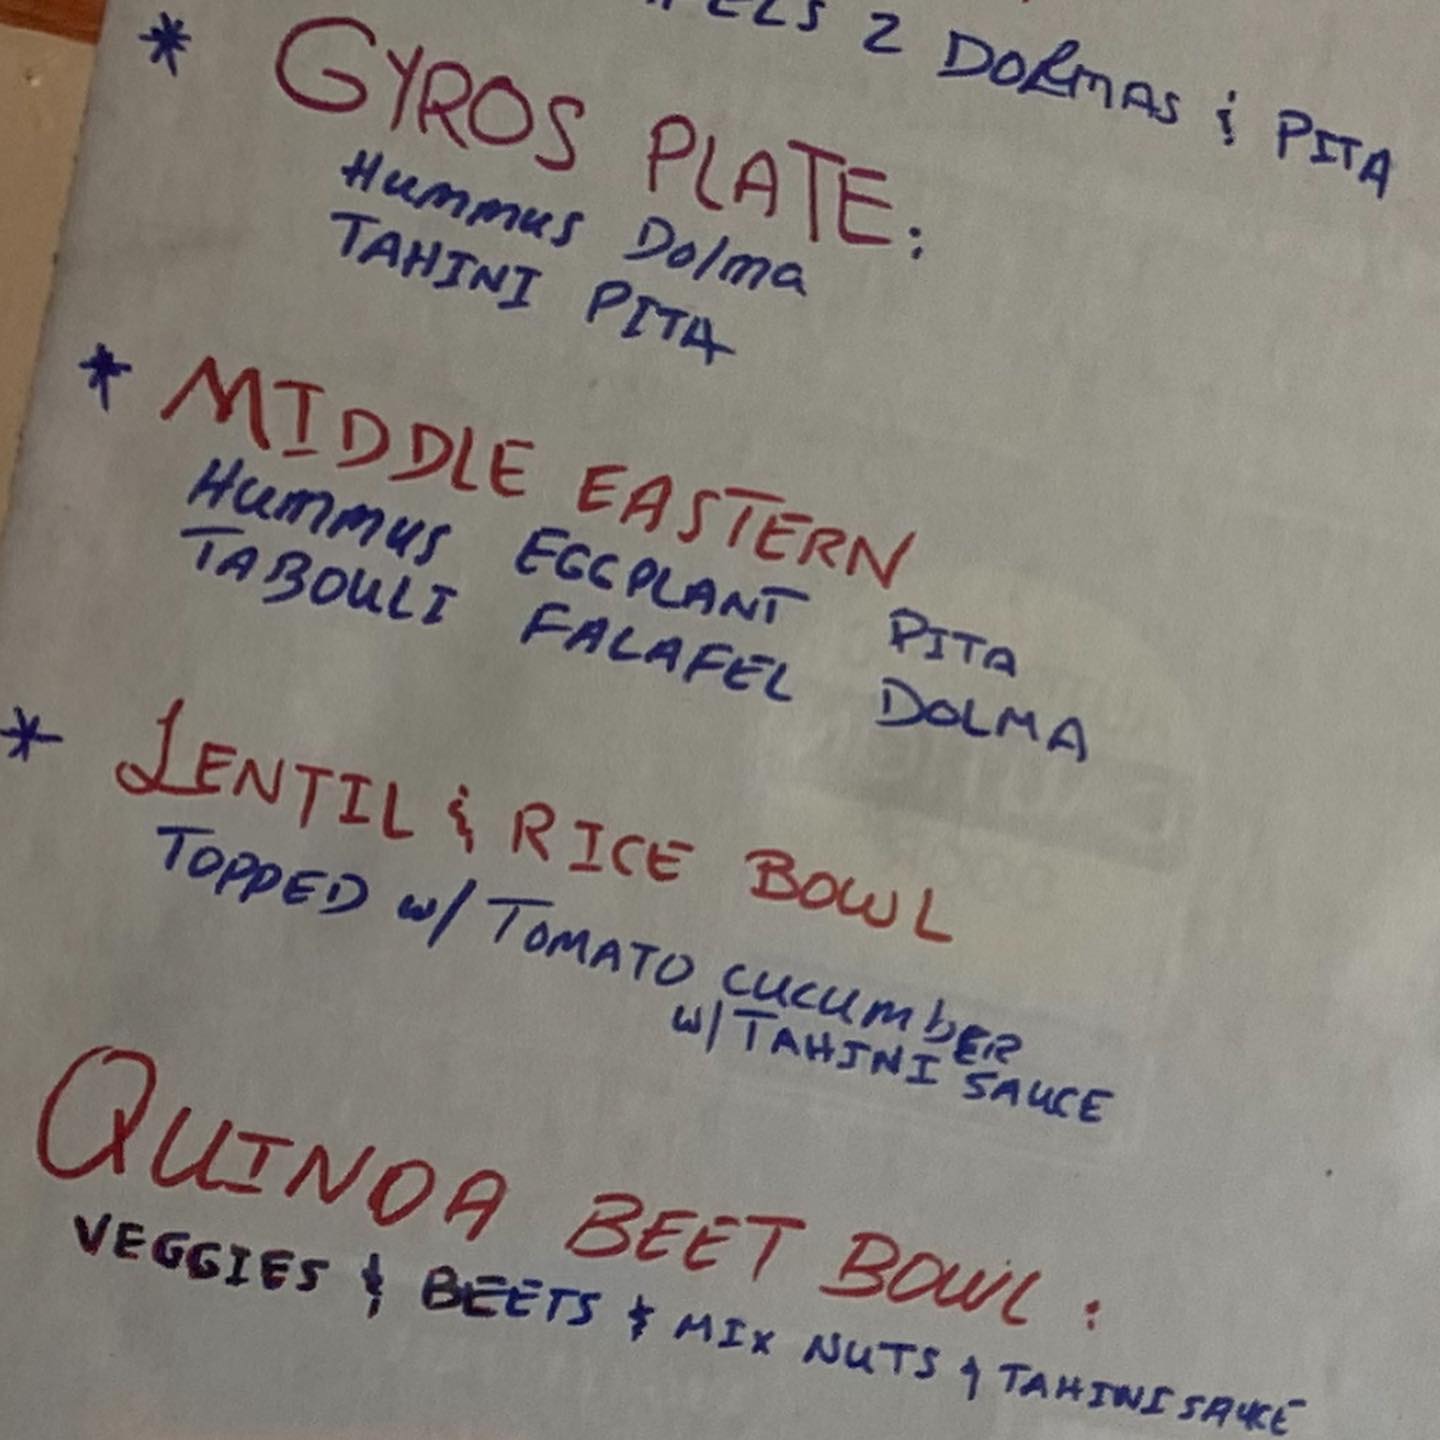 2 DORMAS & PITA
* GYROS PLATE:
HUMMUS Dolma
TAHINI PITA
* MIDDLE EASTERN
HUMMUS EGGPLANT PITA
TABOULI FALAFEL DOLMA
* LENTIL & RICE BOWL
TOPPED w/ TOMATO CUCUMBER
w/ TAHINI SAUCE
QUINOA BEET BOWL:
VEGGIES & BEETS & MIX NUTS & TAHINI SAUCE